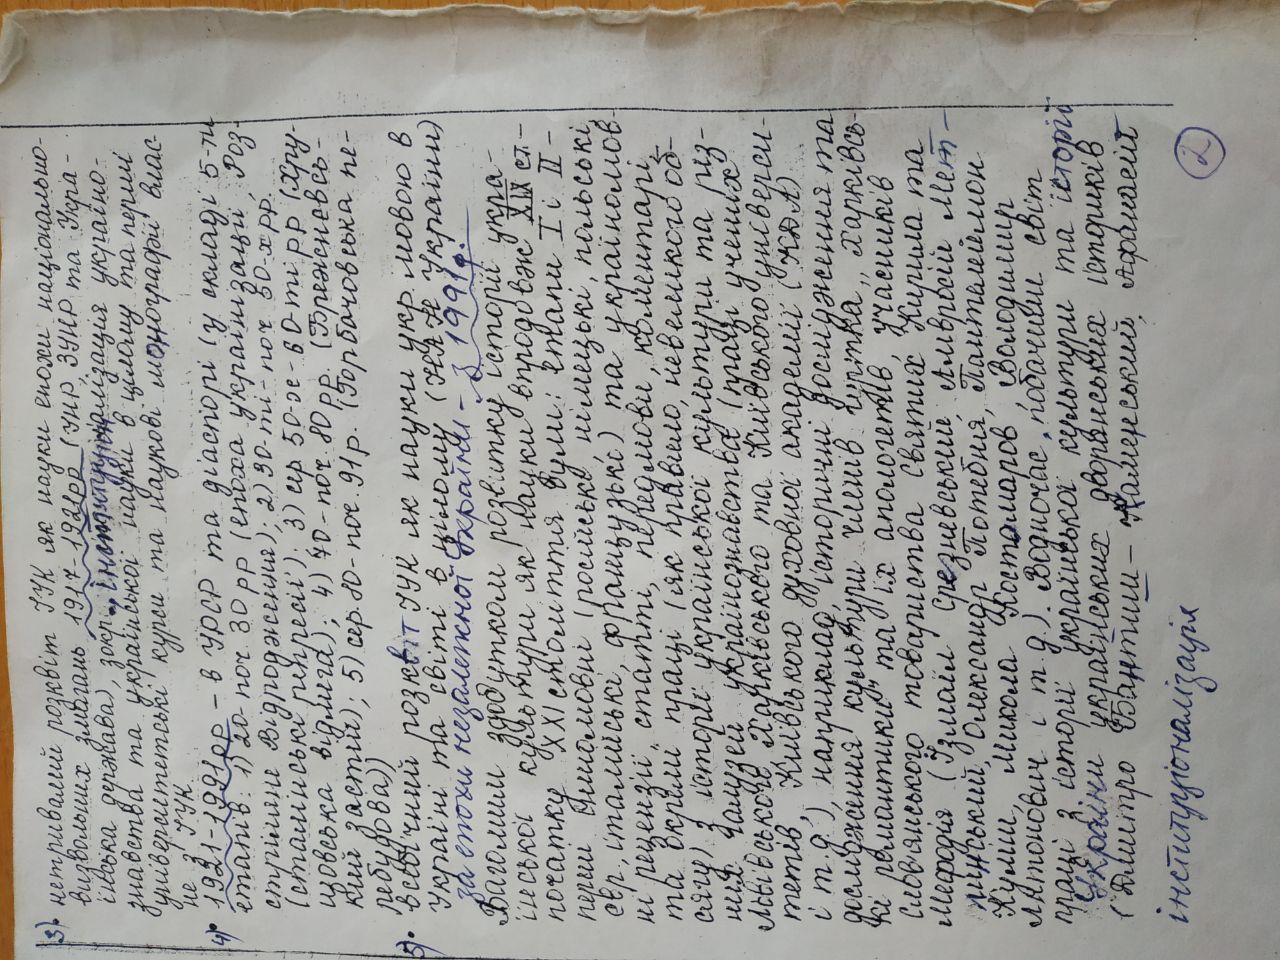 3). нетривалий розквіт ІУК як науки епохи національно-
визвольних змагань 1917-1921рр (УНР, ЗУНР та Укра-
їнська держава), зокр. інституціоналізація україно-
знавства та української науки в цілому та перші
університетські курси та наукові монографії влас-
не з ІУК
4). 1921-1991рр - в УРСР та діаспорі (у складі 5-ти
етапів: 1) 20-поч. 30рр (епоха українізації, Роз-
стріляне Відродження); 2) 30-ті-поч 50-хрр.
(сталінські репресії); 3) сер 50-х-60-ті рр (Хру-
щовська відлига); 4) 70-поч 80рр. (Брежнєвсь-
кий застій); 5) сер 80-поч. 91р. (Горбачовська пе-
ребудова))
5). всебічний розквіт ІУК як науки укр мовою в
Україні та світі в цілому (НАН України)
за епохи незалежної України - з 1991р.
Вагомим здобутком розвитку історії укра-
їнської культури як науки впродовж XIX ст. -
початку XXI століття були: етапи I і II -
перші іншомовні (російські, німецькі, польські,
євр., італійські, французькі) та україномов-
ні рецензії, статті, передмови, коментарі
та окремі праці (як правило, невеликого об-
сягу) з історії української культури та різ-
них галузей українознавства (праці учених
Львівського, Харківського та Київського універси-
тетів, Київського духовної академії (КДА)
і т. д.), наприклад, історичні дослідження та
дослідження культури членів гуртка „харківсь-
кі романтики" та їх апологетів, учасників
Слов'янського товариства святих Кирила та
Мефодія (Ізмаїл Срезневський, Амвросій Мет-
линський, Олександр Потебня, Пантелеймон
Куліш, Микола Костомаров, Володимир
Антонович і т. д.). Водночас, побачили світ
праці з історії української культури та історії
України українських дворянських істориків
(Дмитро Бантиш-Каменський, Афанасій
інституціоналізація
2